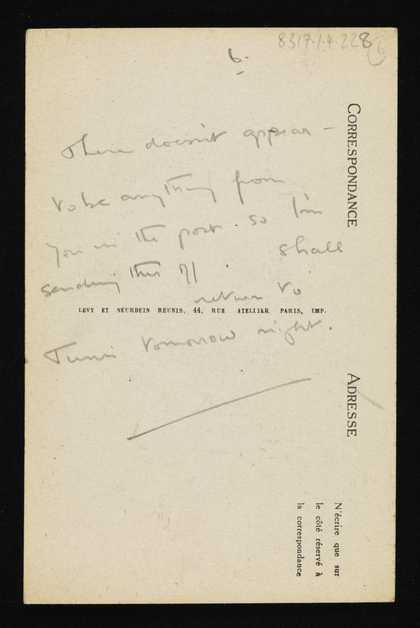 6.
8317.1.4.228
6
There doesn't appear -
to be anything from
you in the post. so I'm
sending this off. shall
return to
LEVY ET NEURDEIN REUNIS, 44, RUE LETELLIER PARIS, IMP.
Tunis tomorrow night.
CORRESPONDANCE
ADRESSE
N'écrire que sur
le côté réservé à
la correspondance